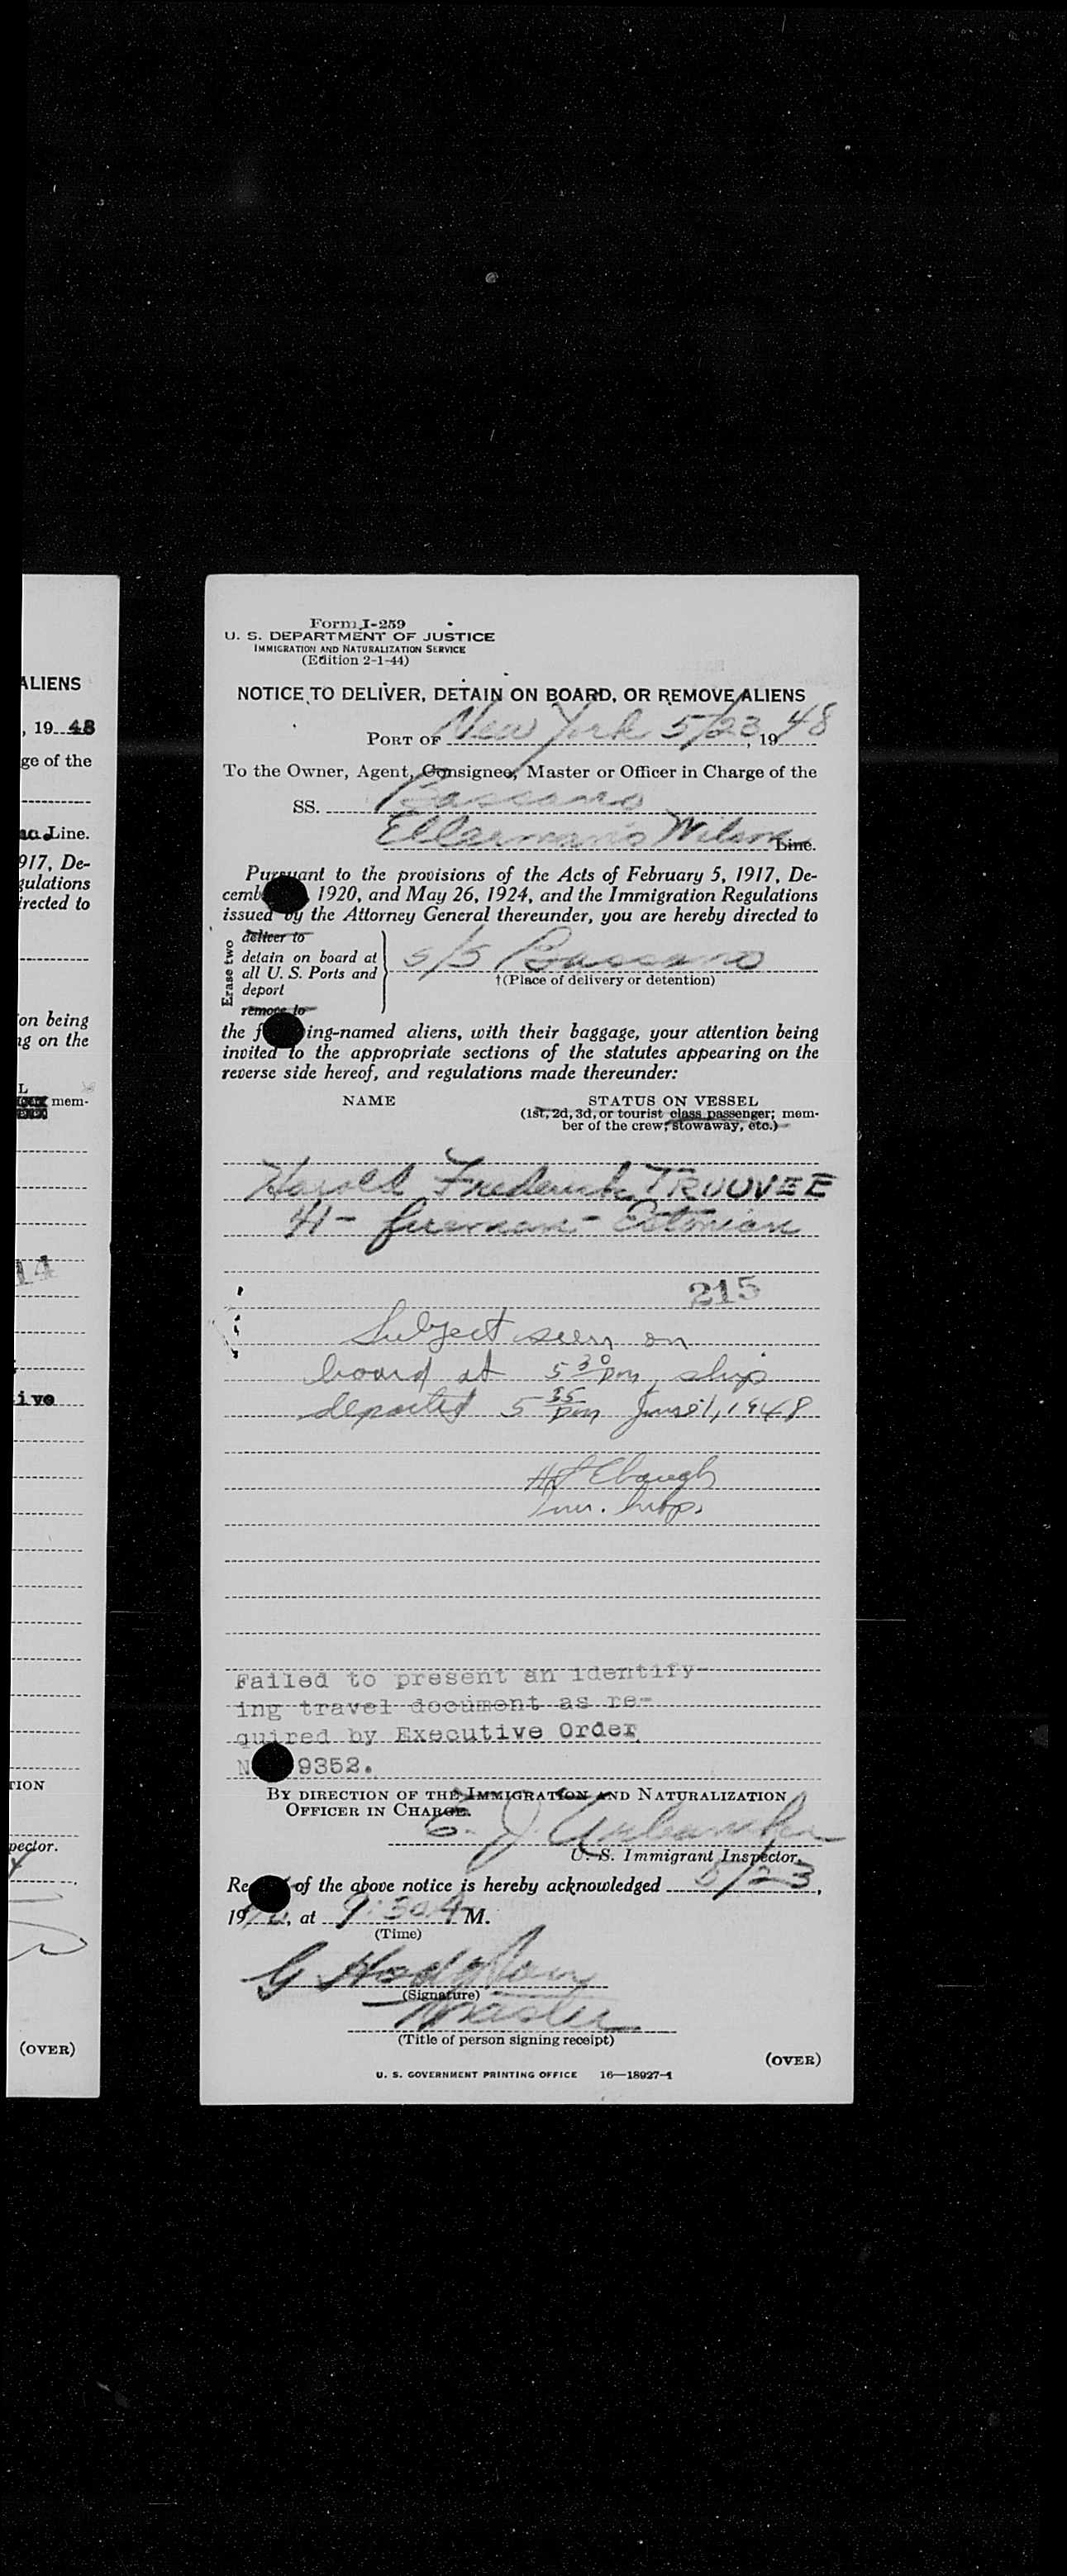 ALIENS
, 19 48
ge of the
Line.
917, De-
gulations
irected to
on being
ng on the
L
mem-
14
ive
TION
pector.
(OVER)
Form I-259
U. S. DEPARTMENT OF JUSTICE
IMMIGRATION AND NATURALIZATION SERVICE
(Edition 2-1-44)
NOTICE TO DELIVER, DETAIN ON BOARD, OR REMOVE ALIENS
PORT OF New York 5/23, 19 48
To the Owner, Agent, Consignee, Master or Officer in Charge of the
SS. Bassano
Ellerman's Wilson Line.
Pursuant to the provisions of the Acts of February 5, 1917, De-
cemb 1920, and May 26, 1924, and the Immigration Regulations
issued by the Attorney General thereunder, you are hereby directed to
Erase two
deliver to
detain on board at
all U. S. Ports and
deport
remove to
s/s Bassano
†(Place of delivery or detention)
the f ing-named aliens, with their baggage, your attention being
invited to the appropriate sections of the statutes appearing on the
reverse side hereof, and regulations made thereunder:
NAME STATUS ON VESSEL
(1st, 2d, 3d, or tourist class passenger; mem-
ber of the crew; stowaway, etc.)
Harold Frederick TRUUVEE
41 - fireman - Estonian
215
Subject seen on
board at 5 30 pm, ship
departed 5 35 pm June 1, 1948
Ebaugh
Imm. Insp.
Failed to present an identify-
ing travel document as re-
quired by Executive Order
N 9352.
BY DIRECTION OF THE IMMIGRATION AND NATURALIZATION
OFFICER IN CHARGE.
E. J.
U. S. Immigrant Inspector.
Re of the above notice is hereby acknowledged 5/23,
19 , at 9:30 A M.
(Time)
G
(Signature)
Master
(Title of person signing receipt)
(OVER)
U. S. GOVERNMENT PRINTING OFFICE 16—18927-1